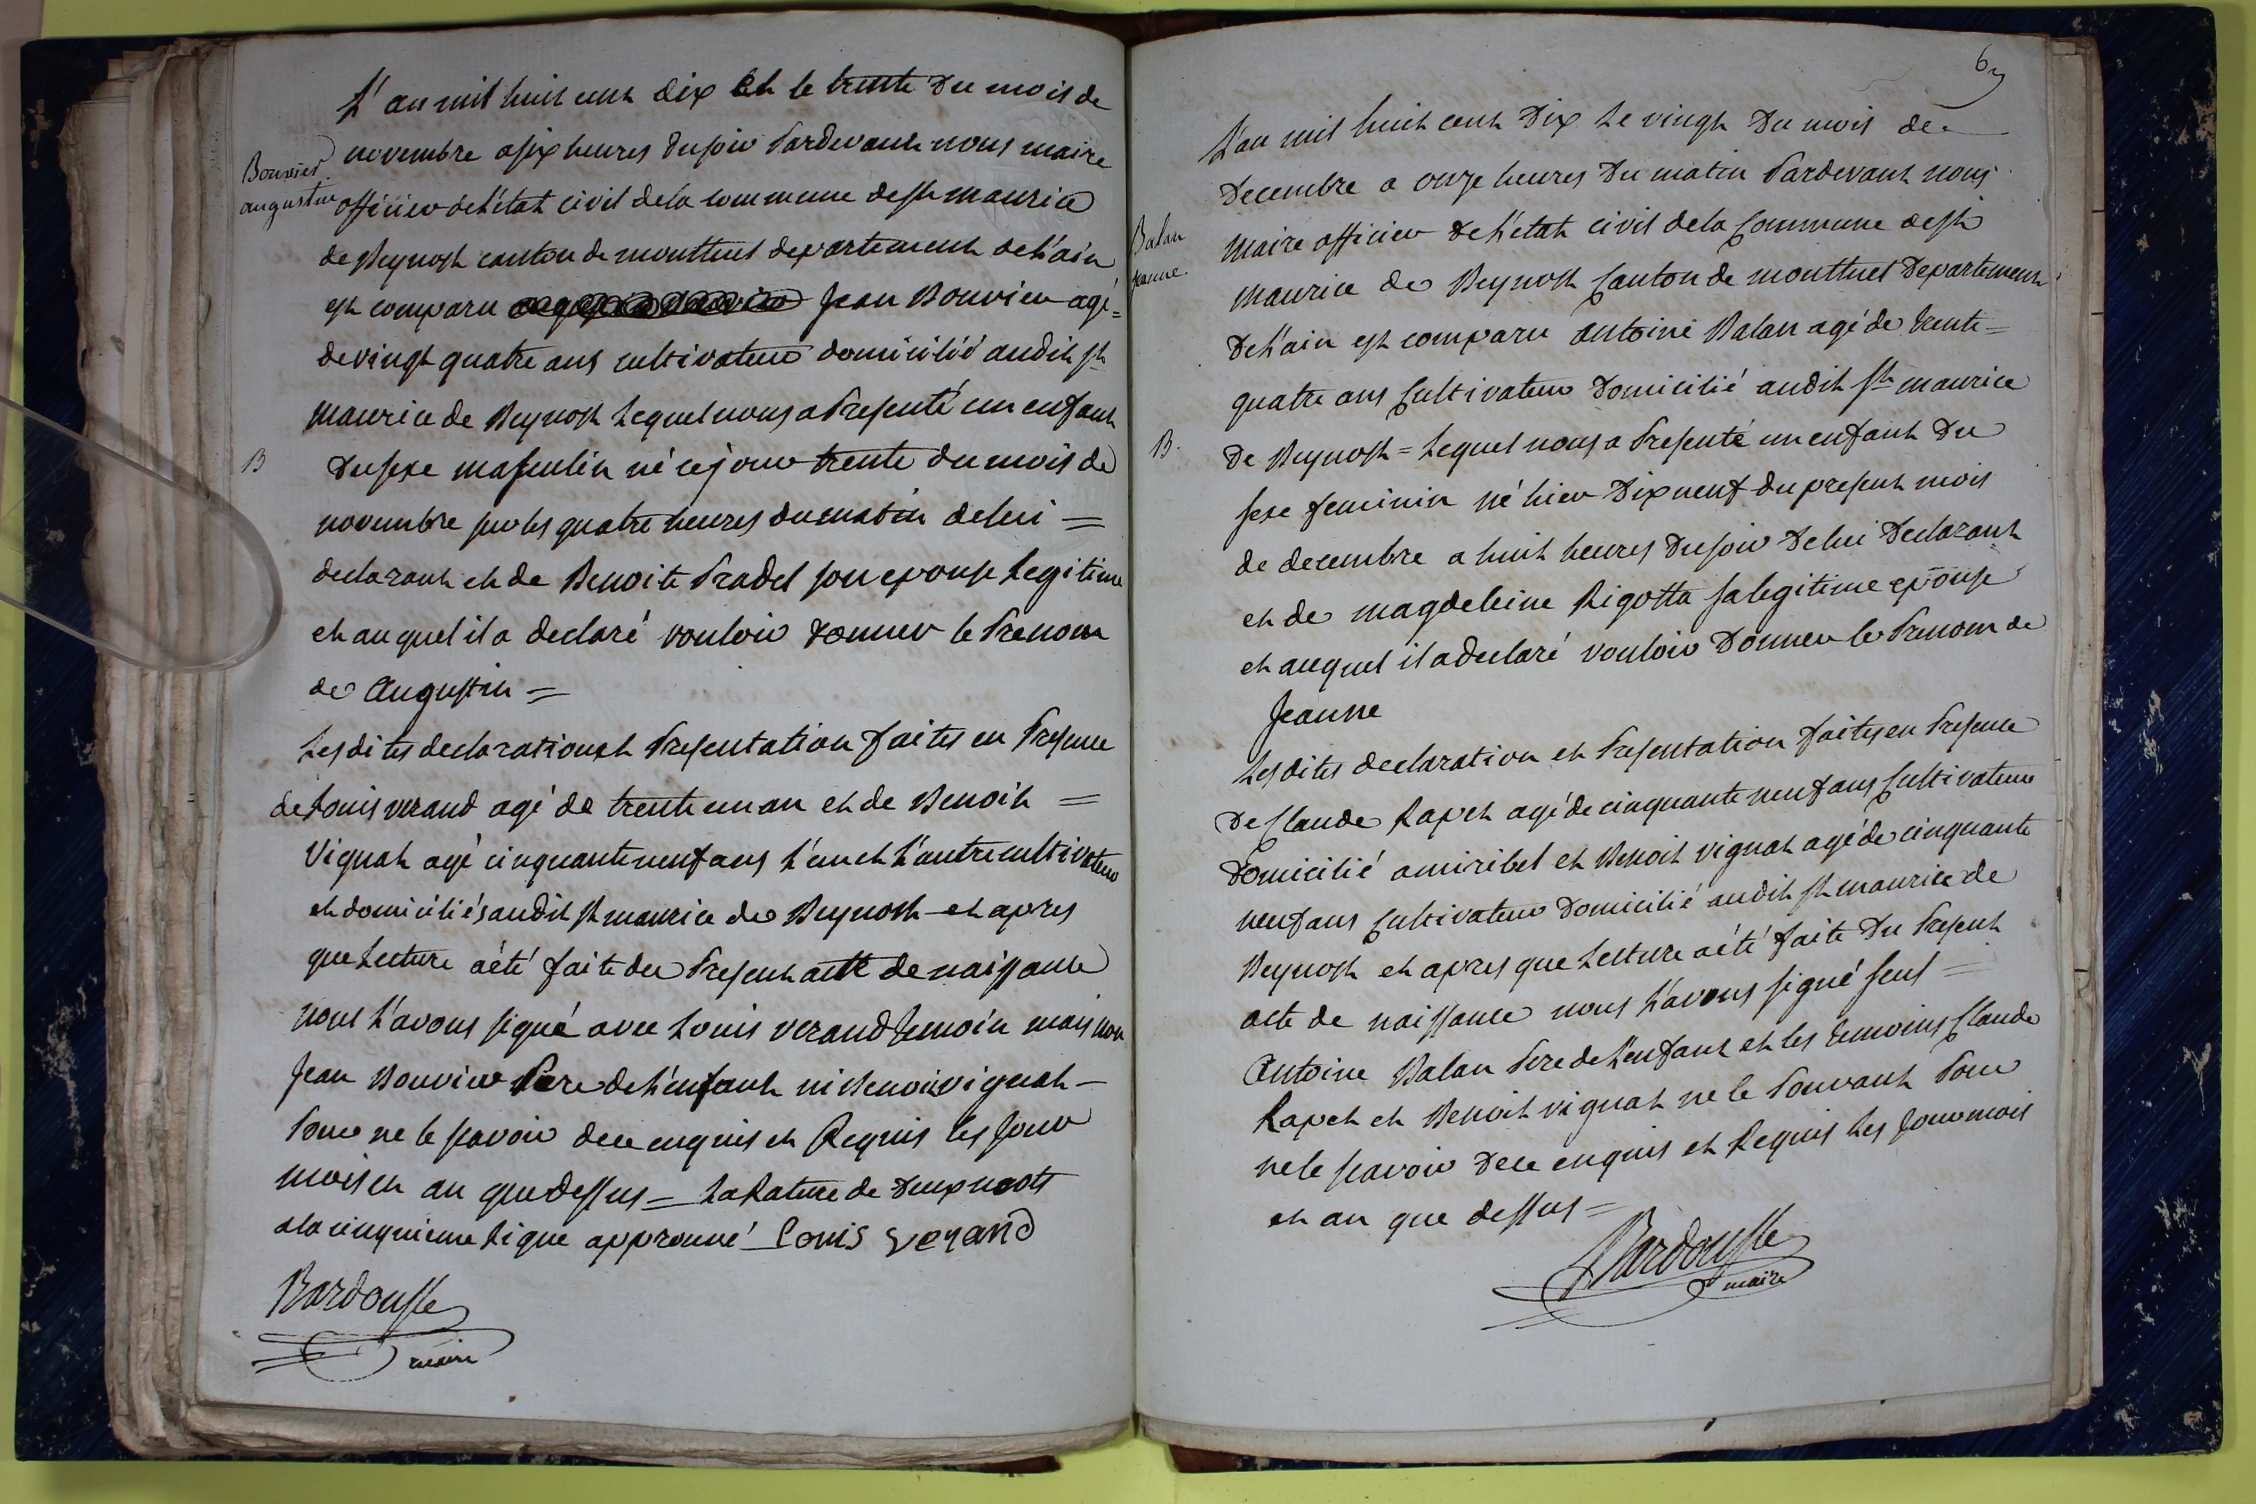 L'an mil huit cent dix et le trente du mois de
Bouvier
augustin
novembre a six heures du soir Pardevant nous maire
officier de l'état civil de la commune de st maurice
de Beynost canton de montluel departement de l'ain
est comparu Jean Bouvier agé =
de vingt quatre ans cultivateur domicilié audit st
maurice de Beynost Lequel nous a Presenté un enfant
B
du sexe masculin né ce jour trente du mois de
novembre sur les quatre heures du matin de lui =
declarant et de Benoite Pradel son epouse Legitime
et auquel il a declaré vouloir donner le Prenom
de Augustin =
Les dites declaration et Presentation faites en Presence
de Louis verand agé de trente un an et de Benoit =
Vignat agé cinquante neuf ans l'un et l'autre cultivateur
et domiciliés audit st maurice de Beynost et apres
que Lecture a été faite du Present acte de naissance
nous l'avons signé avec Louis verand temoin mais non
Jean Bouvier Pere de l'enfant ni Benoit vignat -
Pour ne le scavoir de ce enquis et Requis les Jour
mois et an que dessus = La Rature de deux mots
a la cinquieme Ligne approuvé Louis verand
Bardousse
maire
69
L'an mil huit cent Dix Le vingt Du mois de
Decembre a onze heures Du matin Pardevant nous
Balan
jeanne.
maire officier de l'état civil de la Commune de st
maurice de Beynost Canton de montluel Departement
de l'ain est comparu antoine Balan agé de trente =
quatre ans Cultivateur Domicilié audit st maurice
B.
de Beynost = Lequel nous a Presenté un enfant Du
sexe feminin né hier Dix neuf du present mois
de decembre a huit heures Du soir De lui Declarant
et de magdeleine Rigotta sa legitime epouse
et auquel il a declaré vouloir Donner le Prenom de
Jeanne
Les dites declaration et Presentation faites en Presence
De Claude Rapet agé de cinquante neuf ans Cultivateur
Domicilié a miribel et Benoit vignat agé de cinquante
neuf ans Cultivateur Domicilié audit st maurice de
Beynost et apres que Lecture a été faite Du Present
acte de naissance nous l'avons signé seul =
Antoine Balan Pere de L'enfant et les temoins Claude
Rapet et Benoit vignat ne le Pouvant Pour
ne le scavoir De ce enquis et Requis Les Jour mois
et an que dessus =
Bardousse
maire